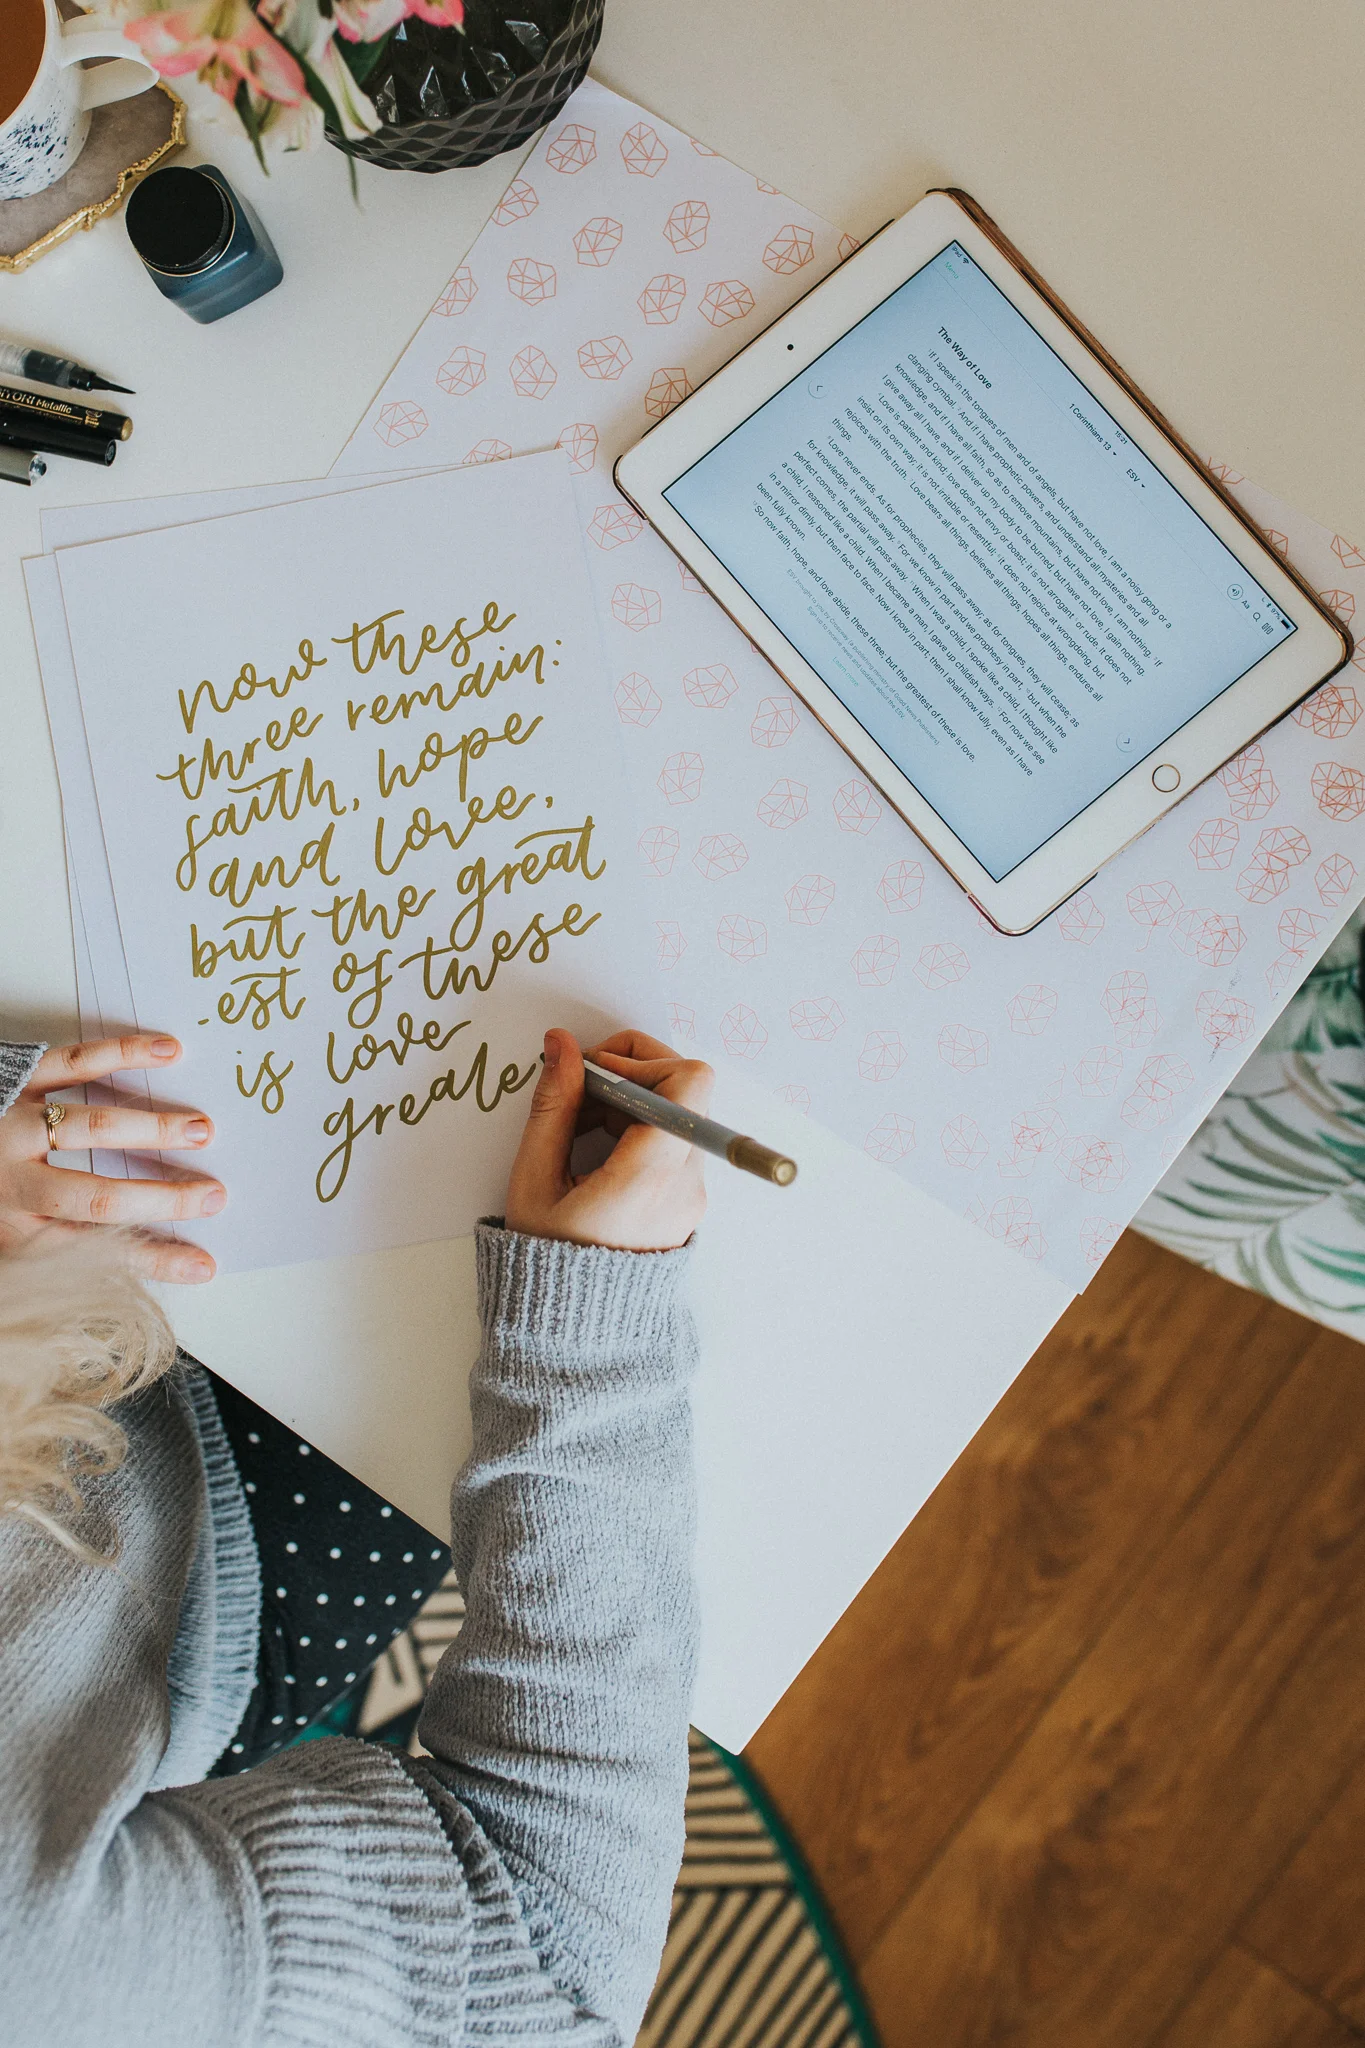 now these
three remain:
faith, hope
and love,
but the great
.est of these
is love
greate
iPad
15:21
97%
Menu
1 Corinthians 13
ESV
Aa
The Way of Love
1 If I speak in the tongues of men and of angels, but have not love, I am a noisy gong or a
clanging cymbal. 2 And if I have prophetic powers, and understand all mysteries and all
knowledge, and if I have all faith, so as to remove mountains, but have not love, I am nothing. 3 If
I give away all I have, and if I deliver up my body to be burned, but have not love, I gain nothing.
4 Love is patient and kind; love does not envy or boast; it is not arrogant 5 or rude. It does not
insist on its own way; it is not irritable or resentful; 6 it does not rejoice at wrongdoing, but
rejoices with the truth. 7 Love bears all things, believes all things, hopes all things, endures all
things.
8 Love never ends. As for prophecies, they will pass away; as for tongues, they will cease; as
for knowledge, it will pass away. 9 For we know in part and we prophesy in part, 10 but when the
perfect comes, the partial will pass away. 11 When I was a child, I spoke like a child, I thought like
a child, I reasoned like a child. When I became a man, I gave up childish ways. 12 For now we see
in a mirror dimly, but then face to face. Now I know in part; then I shall know fully, even as I have
been fully known.
13 So now faith, hope, and love abide, these three; but the greatest of these is love.
ESV brought to you by Crossway (a publishing ministry of Good News Publishers)
Sign up to receive news and updates about the ESV.
Learn more
Metallic